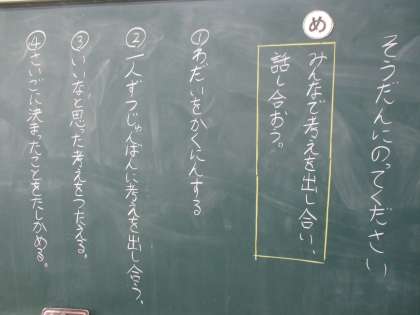 そうだんにのってください
め
みんなで考えを出し合い、
話し合おう。
①わだいをかくにんする
②一人ずつじゅんばんに考えを出し合う、
③いいなと思った考えをつたえる。
④さいごに決まったことをたしかめる。